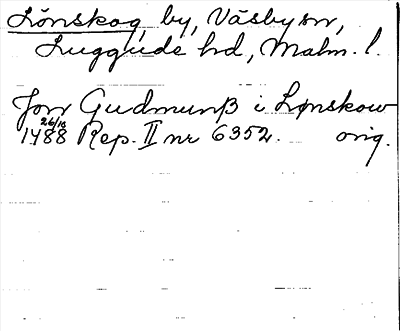 Lönskog, by, Väsby sn,
Luggude hd, Malm. l.
Jon Gudmunß i Lønskow
26/10
1488 Rep. II nr 6352. orig.